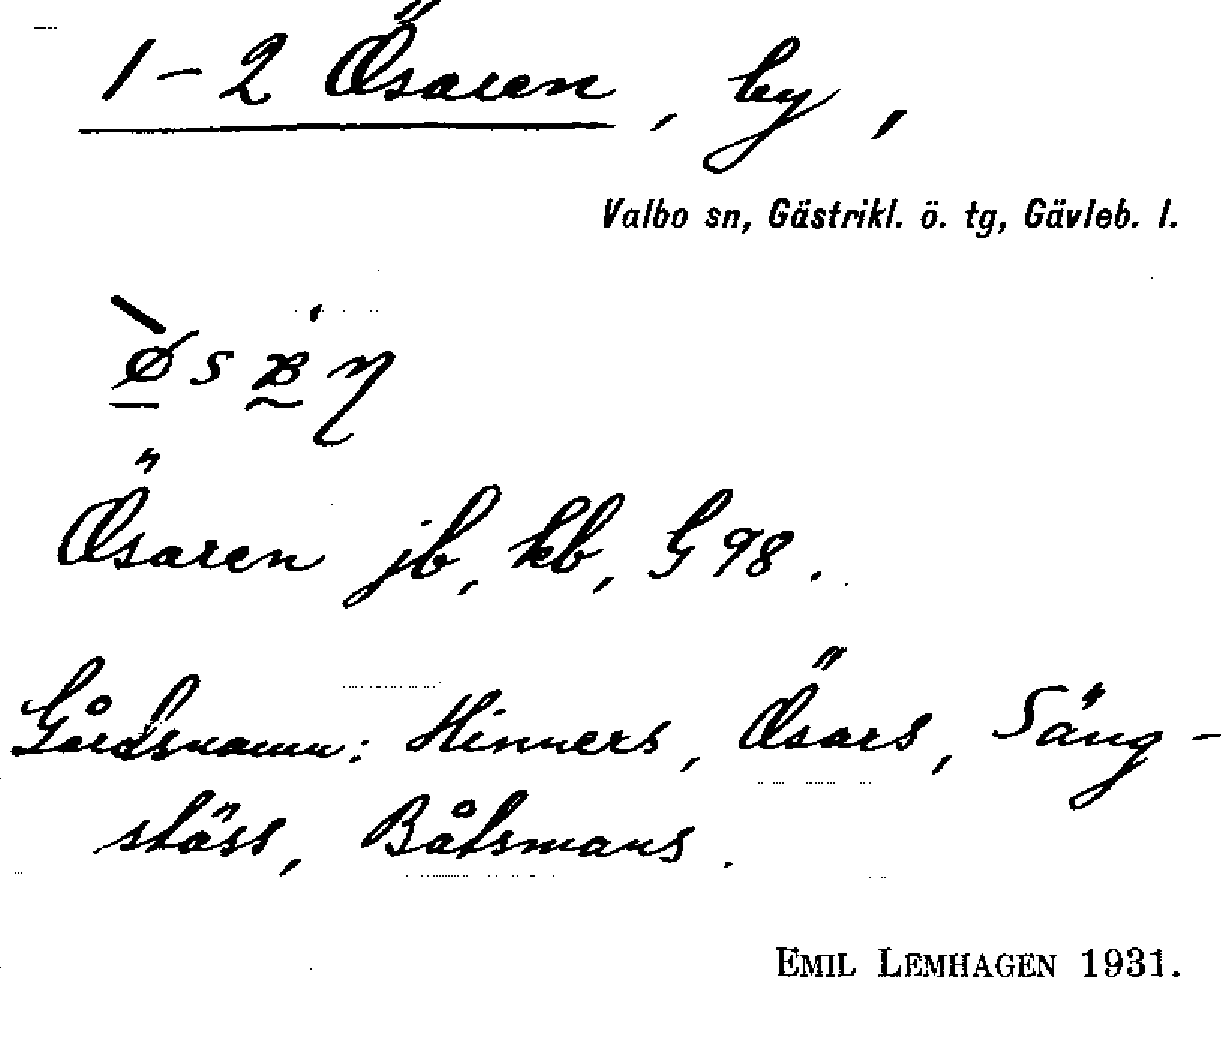 1-2 Ösaren, by,
Valbo sn, Gästrikl. ö. tg, Gävleb. l.
Ösaren jb, kb, G 98.
Gårdsnamn: Hinners, Ösars, Säng-
stäss, Båtsmans.
EMIL LEMHAGEN 1931.